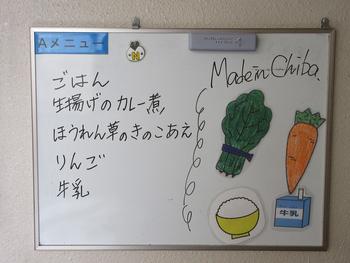 Aメニュー
N
Made in Chiba.
ごはん
生揚げのカレー煮
ほうれん草のきのこあえ
りんご
牛乳
牛乳